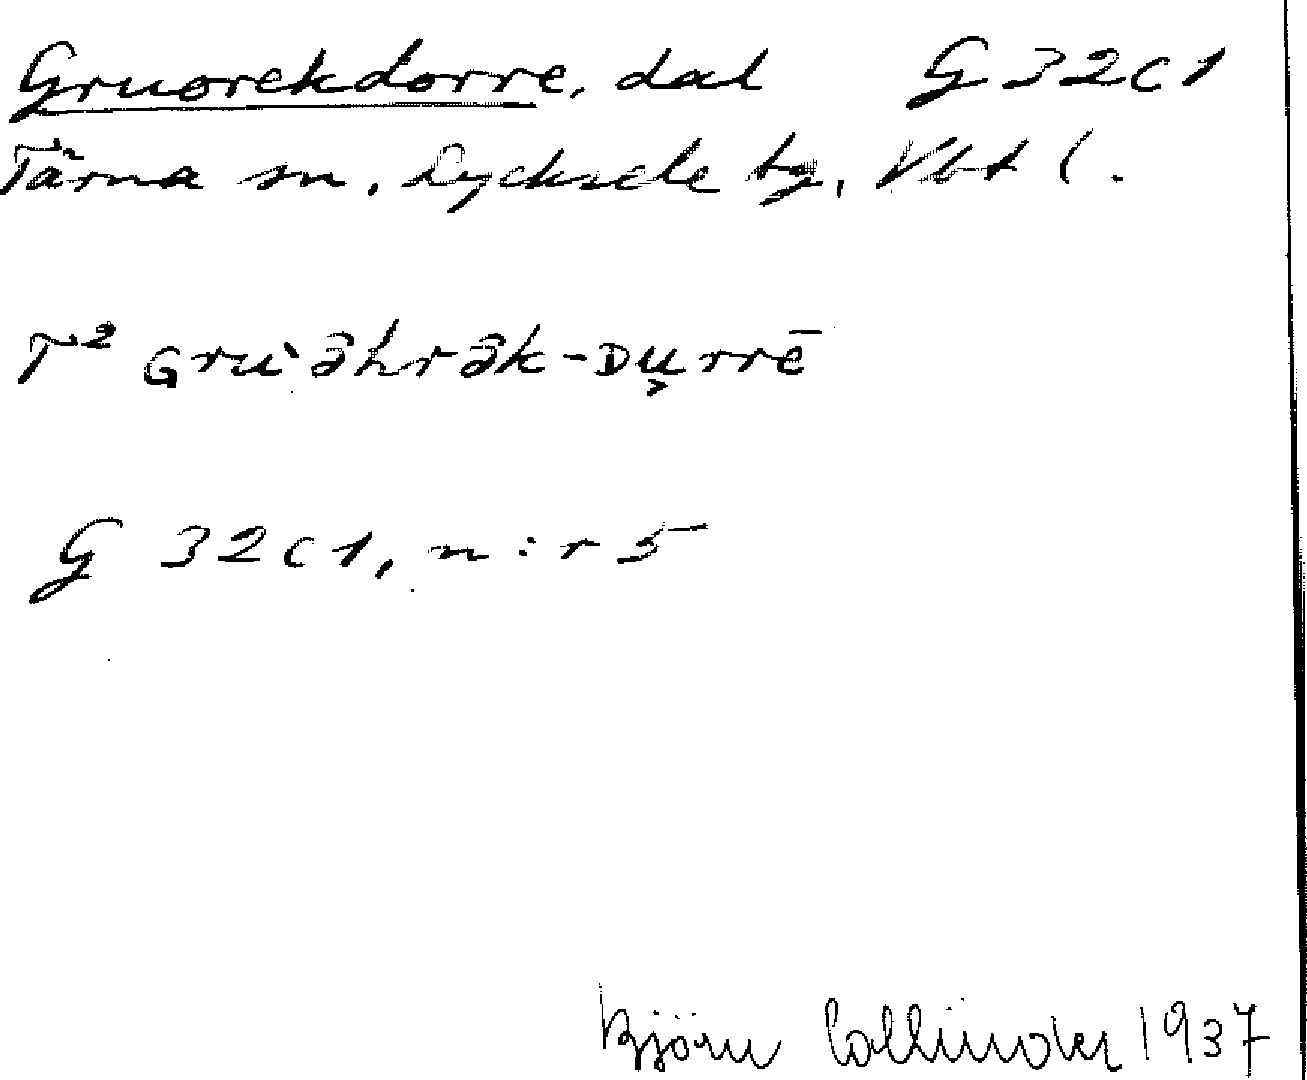 Gruorekdorre, dal G 32c1
Tärna sn, Lycksele tg, Vbt l.
T² Gru̇̀âhrâk-Dụrrē
G 32c1, n:r 5
Björn Collinder 1937